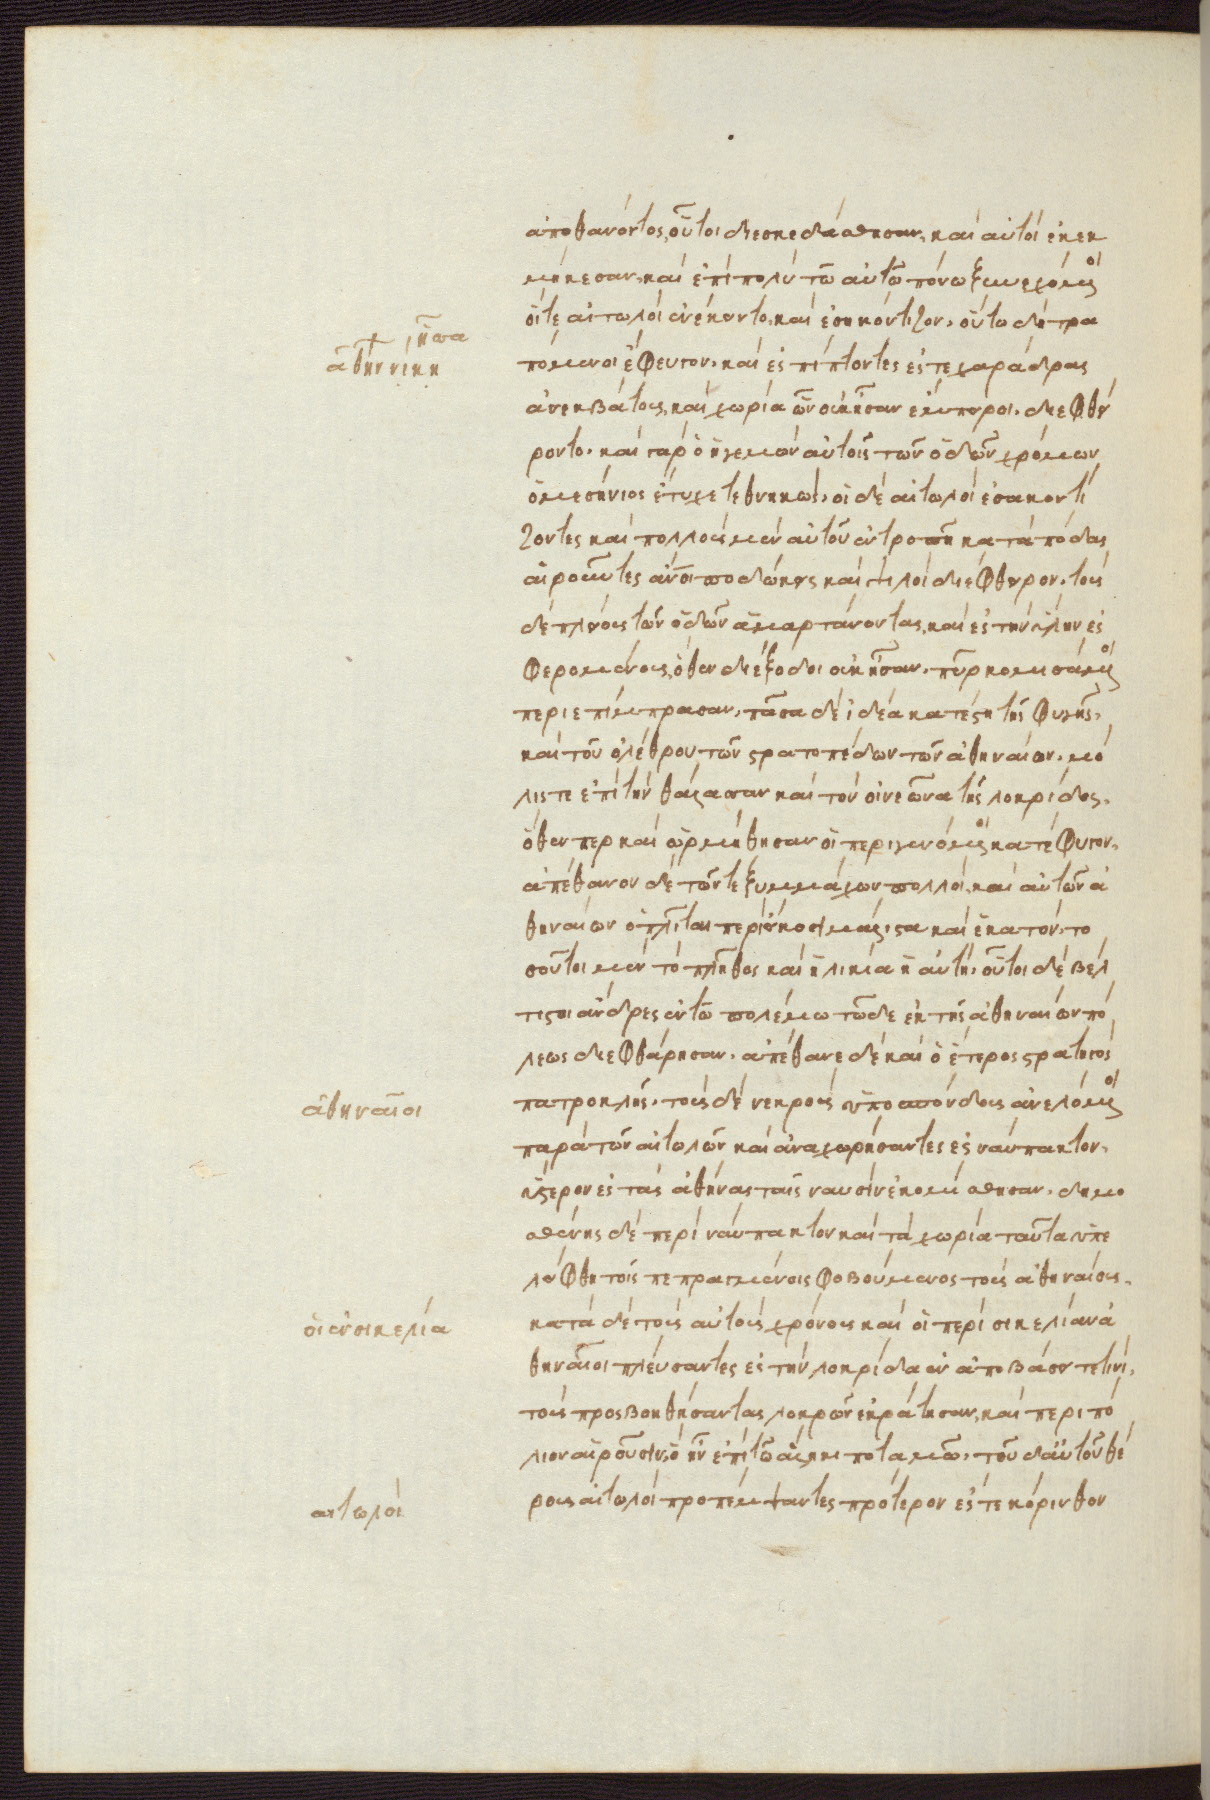 ἀποθανόντος, οὗτοι διεσκεδάσθησαν, καὶ αὐτοὶ ἐκεκ
μήκεσαν, καὶ ἐπὶ πολὺ τῶ αὐτῶ πόνω ξυνεχόμενοι
οἵτε αἰτωλοὶ ἐνέκειντο, καὶ ἐσηκόντιζον. οὕτω δὴ τρα
πόμενοι ἔφευγον. καὶ ἐσπίπτοντες ἔς τε χαράδρας
ἀνεκβάτους, καὶ χωρία ὧν οὐκ ἦσαν ἔμπειροι, διεφθεί
ροντο. καὶ γὰρ ὁ ἡγεμὼν αὐτοῖς τῶν ὁδῶν χρόμων
ὁ μεσήνιος ἐτύγχανε τεθνηκώς. οἱ δὲ αἰτωλοὶ ἐσακοντί
ζοντες καὶ πολλοὺς μὲν αὐτοῦ ἐν τροπῆ κατὰ πόδας
αἱροῦντες ἄνοι ποδώκεις καὶ ψιλοὶ διέφθειρον. τοὺς
δὲ πλείους τῶν ὁδῶν ἁμαρτάνοντας, καὶ ἐς τὴν ὕλην ἐσ
φερομένους, ὅθεν διέξοδοι οὐκ ἦσαν, πῦρ κομισάμενοι
περιεπίμπρασαν. πᾶσα δὲ ἰδέα κατέστη τῆς φυγῆς,
καὶ τοῦ ὀλέθρου τῶν στρατοπέδων τῶν ἀθηναίων. μό
λις τε ἐπὶ τὴν θάλασσαν καὶ τὸν οἰνεῶνα τῆς λοκρίδος,
ὅθεν περ καὶ ὡρμήθησαν οἱ περιγενόμενοι κατέφυγον.
ἀπέθανον δὲ τῶν τε ξυμμάχων πολλοί, καὶ αὐτῶν ἀ
θηναίων ὁπλῖται περὶ εἴκοσι μάλιστα καὶ ἑκατόν. το
σοῦτοι μὲν τὸ πλῆθος καὶ ἡλικία ἡ αὐτή. οὗτοι δὲ βέλ
τιστοι ἄνδρες ἐν τῶ πολέμω τῶδε ἐκ τῆς ἀθηναίων πό
λεως διεφθάρησαν. ἀπέθανε δὲ καὶ ὁ ἕτερος στρατηγὸς
πατροκλῆς. τοὺς δὲ νεκροὺς ὑποσπόνδους ἀνελόμενοι
παρὰ τῶν αἰτωλῶν καὶ ἀναχωρήσαντες ἐς ναύπακτον,
ὕστερον ἐς τὰς ἀθήνας ταῖς ναυσὶν ἐκομίσθησαν. δημο
σθένης δὲ περὶ ναύπακτον καὶ τὰ χωρία ταῦτα ὑπε
λείφθη τοῖς πεπραγμένοις φοβούμενος τοὺς ἀθηναίους.
κατὰ δὲ τοὺς αὐτοὺς χρόνους καὶ οἱ περὶ σικελίαν ἀ
θηναῖοι πλεύσαντες ἐς τὴν λοκρίδα ἐν ἀποβάσει τε τινί,
τοὺς προσβοηθήσαντας λοκρῶν ἐκράτησαν, καὶ περιπό
λιον αἱροῦσιν, ὃ ἦν ἐπὶ τῶ ἄληκι ποταμῶ. τοῦ δ' αὐτοῦ θέ
ρους αἰτωλοὶ προπέμψαντες πρότερον ἔς τε κόρινθον
ἧσσα
ἀθην νίκη
ἀθηναῖοι
οἱ ἐν σικελία
αἰτωλοί